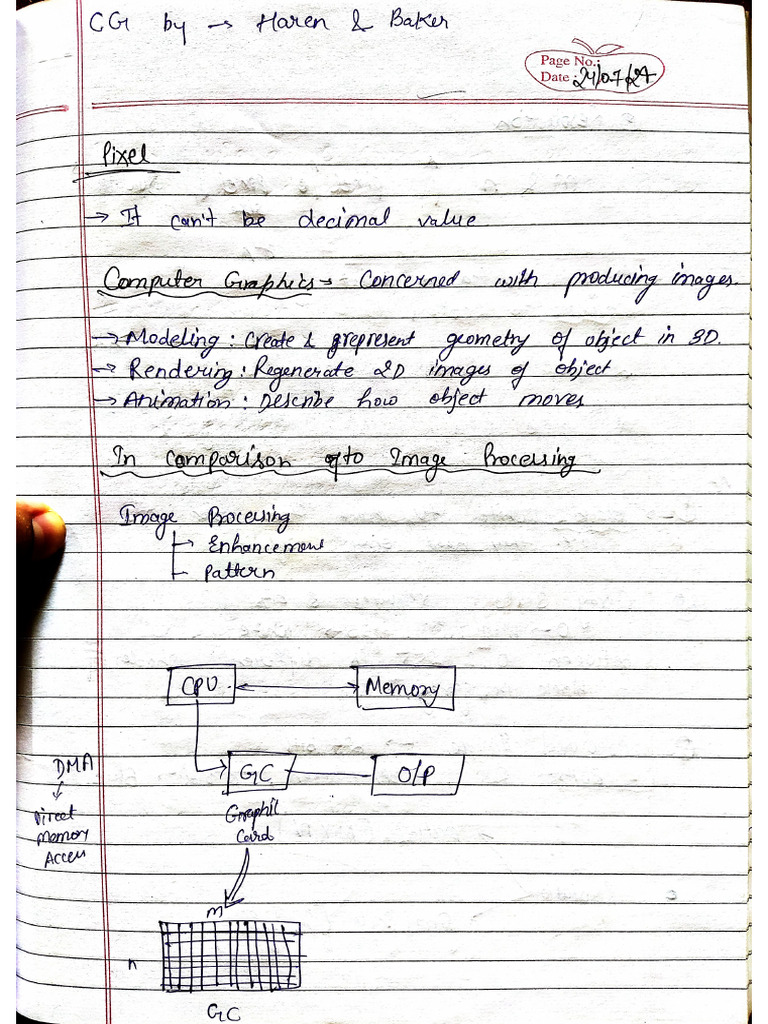 CG by → Haren & Baker
Page No.:
Date : 24/07/24
Pixel
→ It can't be decimal value
Computer Graphics → Concerned with producing images.
→ Modeling : Create & represent geometry of object in 3D.
→ Rendering : Regenerate 2D images of object
→ Animation : Describe how object moves
In comparison to Image Processing
Image Processing
→ Enhancement
Pattern
CPU
Memory
DMA
Direct
Memory
Access
GC
O/P
Graphic
Card
m
n
GC